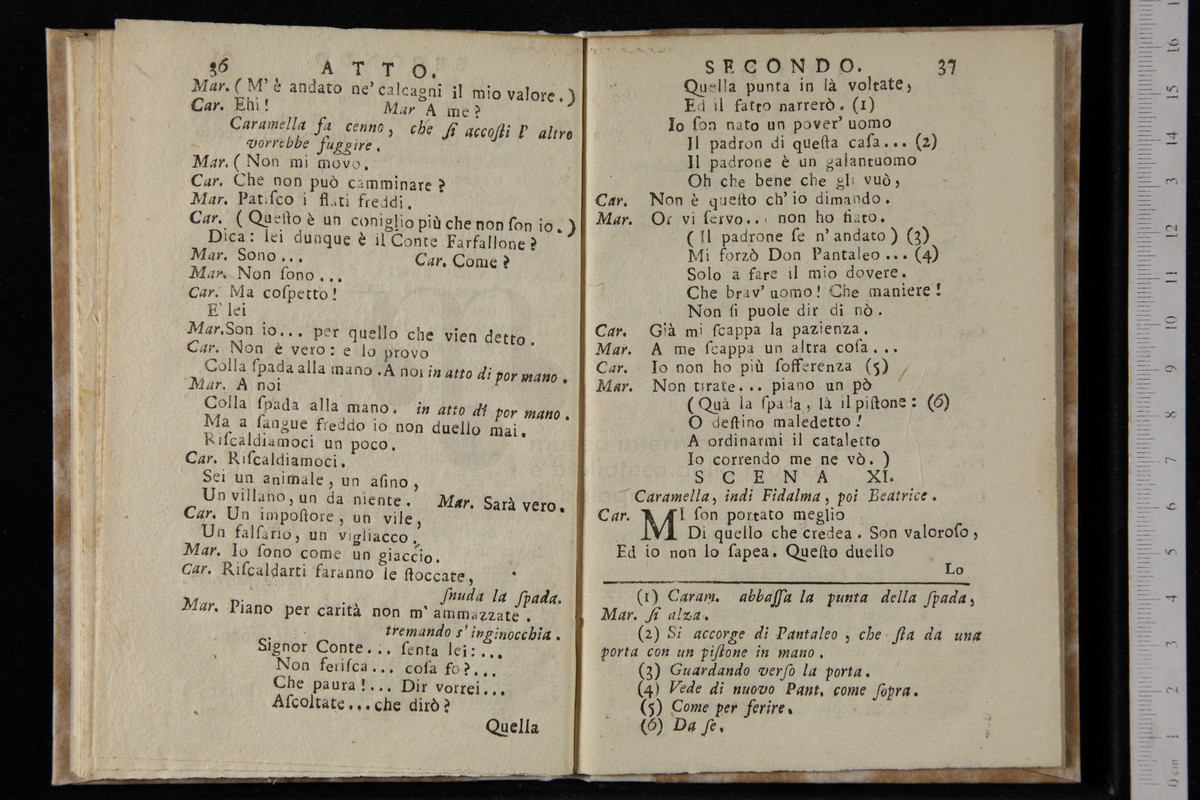 36 ATTO.
Mar. ( M' è andato ne' calcagni il mio valore. )
Car. Ehi! Mar A me?
Caramella fa cenno, che ſi accoſti l' altro
vorrebbe fuggire.
Mar. ( Non mi movo.
Car. Che non può camminare?
Mar. Patiſco i flati freddi.
Car. ( Queſto è un coniglio più che non ſon io. )
Dica: lei dunque è il Conte Farfallone?
Mar. Sono... Car. Come?
Mar. Non ſono...
Car. Ma coſpetto!
E' lei
Mar. Son io... per quello che vien detto.
Car. Non è vero: e lo provo
Colla ſpada alla mano. A noi in atto di por mano.
Mar. A noi
Colla ſpada alla mano. in atto di por mano.
Ma a ſangue freddo io non duello mai.
Riſcaldiamoci un poco.
Car. Riſcaldiamoci.
Sei un animale, un aſino,
Un villano, un da niente. Mar. Sarà vero.
Car. Un impoſtore, un vile,
Un falſario, un vigliacco.
Mar. Io ſono come un giaccio.
Car. Riſcaldarti faranno le ſtoccate,
ſnuda la ſpada.
Mar. Piano per carità non m' ammazzate.
tremando s' inginocchia.
Signor Conte... ſenta lei:...
Non feriſca... coſa fo?...
Che paura!... Dir vorrei...
Aſcoltate... che dirò?
Quella
SECONDO. 37
Quella punta in là voltate,
Ed il fatto narrerò. (1)
Io ſon nato un pover' uomo
Il padron di queſta caſa... (2)
Il padrone è un galantuomo
Oh che bene che gli vuò,
Car. Non è queſto ch' io dimando.
Mar. Or vi ſervo... non ho fiato.
( Il padrone ſe n' andato ) (3)
Mi forzò Don Pantaleo... (4)
Solo a fare il mio dovere.
Che brav' uomo! Che maniere!
Non ſi puole dir di nò.
Car. Già mi ſcappa la pazienza.
Mar. A me ſcappa un altra coſa...
Car. Io non ho più ſofferenza (5)
Mar. Non tirate... piano un pò
( Quà la ſpada, là il piſtone: (6)
O deſtino maledetto!
A ordinarmi il cataletto
Io correndo me ne vò. )
SCENA XI.
Caramella, indi Fidalma, poi Beatrice.
Car. MI ſon portato meglio
Di quello che credea. Son valoroſo,
Ed io non lo ſapea. Queſto duello
Lo
(1) Caram. abbaſſa la punta della ſpada,
Mar. ſi alza.
(2) Si accorge di Pantaleo, che ſta da una
porta con un piſtone in mano.
(3) Guardando verſo la porta.
(4) Vede di nuovo Pant. come ſopra.
(5) Come per ferire.
(6) Da ſe.